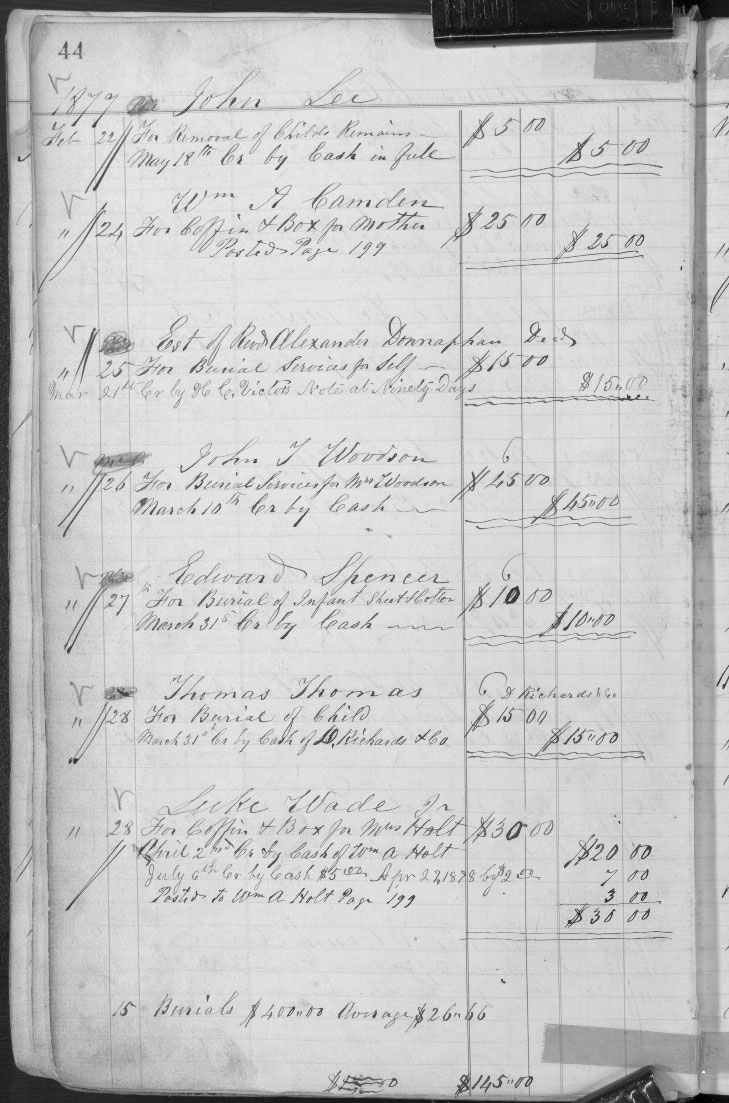 44
1877 John Lee
Feb 22 For Removal of Childs Remains $5 00
May 18th Cr by Cash in full $5 00
Wm A Camden
" 24 For Coffin & Box for Mother $25 00
Posted Page 199 $25 00
Est of Revd Alexander Donnaphan Decd
" 25 For Burial Services for Self $15 00
Mar 21st Cr by H C. Victors Note at Ninety Days $15"00
John T Woodson 6
" 26 For Burial Services for Mrs Woodson $45 00
March 10th Cr by Cash $45"00
Edward Spencer 6
" 27 For Burial of Infant Sheet & Cotton $10 00
March 31st Cr by Cash $10"00
Thomas Thomas 6 D Richards & Co
" 28 For Burial of Child $15 00
March 31st Cr by Cash of D. Richards & Co $15"00
Luke Wade Jr
" 28 For Coffin & Box for Mrs Holt $30 00
April 2nd Cr by Cash of Wm A Holt $20 00
July 6th Cr by Cash $5 00 Apr 27, 1878 by $2 00 7 00
Posted to Wm A Holt Page 199 3 00
$30 00
15 Burials $400"00 Average $26"66
$145"00